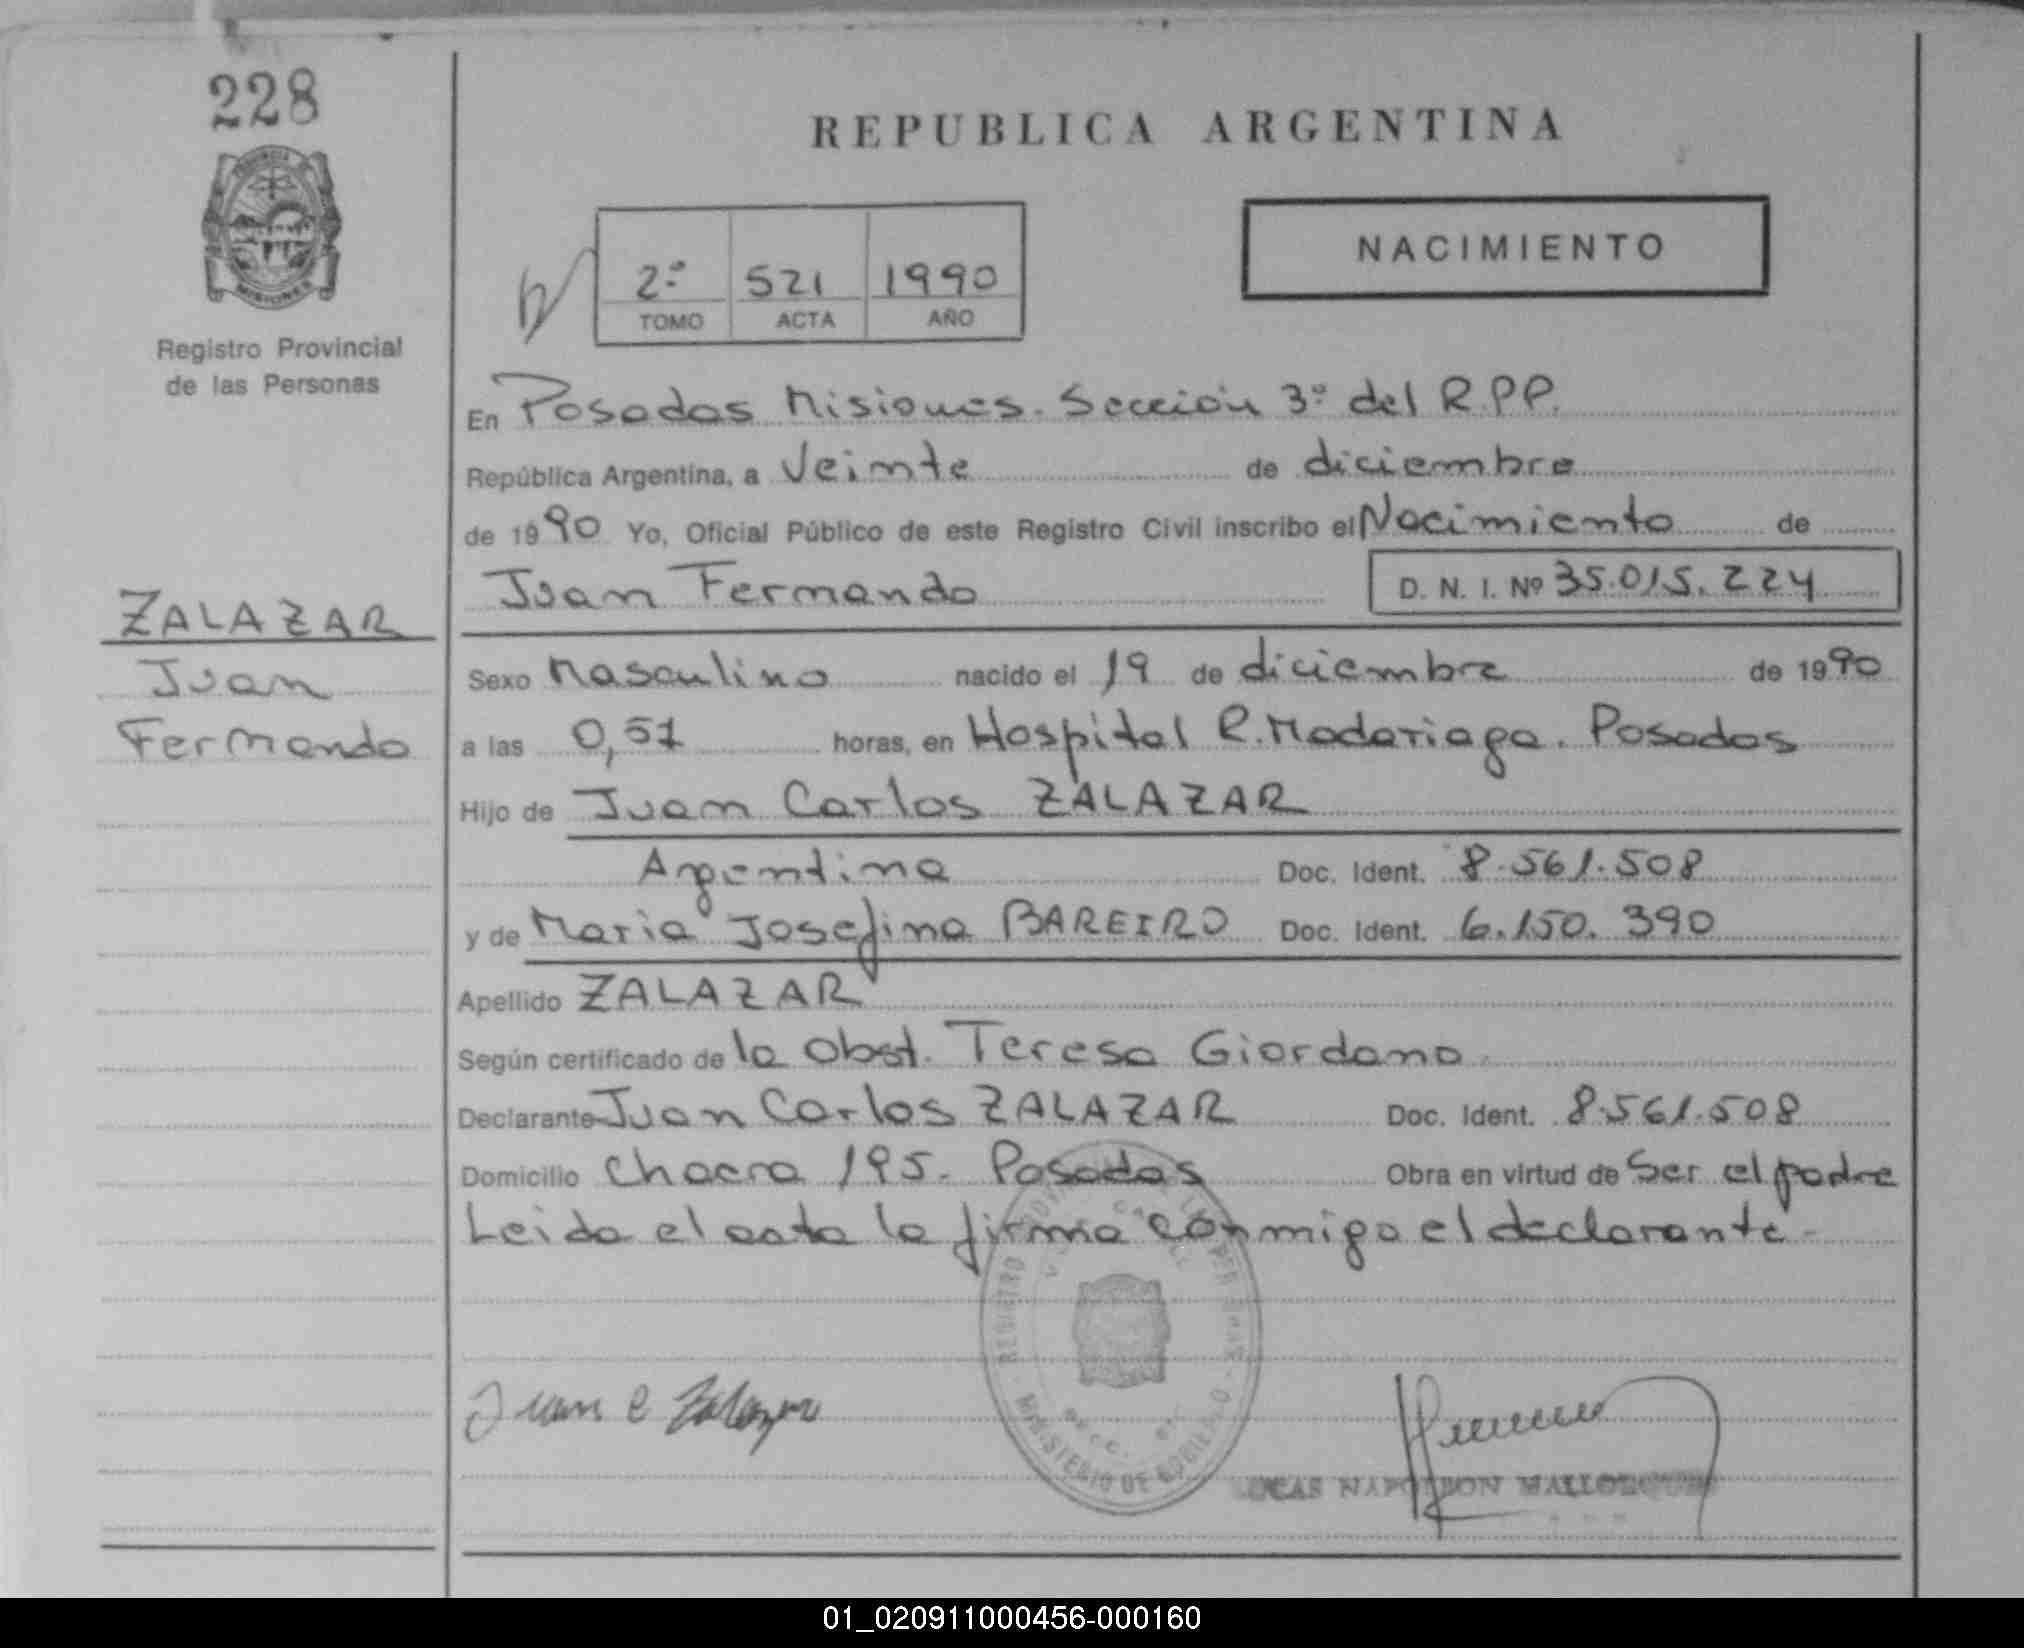 228
PROVINCIA
MISIONES
Registro Provincial
de las Personas
ZALAZAR
Juan
Fernando
REPUBLICA ARGENTINA
NACIMIENTO
2º 521 1990
TOMO ACTA AÑO
En Posadas Misiones. Sección 3º del R.P.P.
República Argentina, a Veinte de diciembre
de 1990 Yo, Oficial Público de este Registro Civil inscribo el Nacimiento de
Juan Fernando D. N. I. Nº 35.015.224
Sexo Masculino nacido el 19 de diciembre de 1990
a las 0,57 horas, en Hospital R. Madariaga. Posadas
Hijo de Juan Carlos ZALAZAR
Argentina Doc. Ident. 8.561.508
y de Maria Josefina BAREIRO Doc. Ident. 6.150.390
Apellido ZALAZAR
Según certificado de la Obst. Teresa Giordano
Declarante Juan Carlos ZALAZAR Doc. Ident. 8.561.508
Domicilio Chacra 195. Posadas Obra en virtud de Ser el padre
Leida el acta la firma conmigo el declarante.
REGISTRO
MINISTERIO DE GOBIERNO
Juan C Zalazar
LUCAS NAPOLEON
01_020911000456-000160